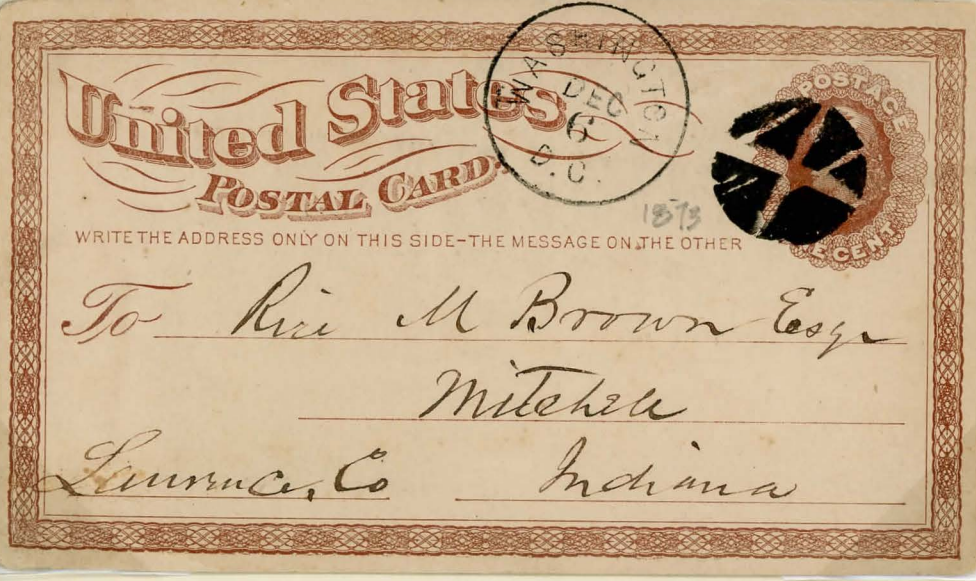 United States
POSTAL CARD.
WASHINGTON
DEC
6
D.C.
POSTAGE
E CENT
1873
WRITE THE ADDRESS ONLY ON THIS SIDE-THE MESSAGE ON THE OTHER
To M Brown Esqr
Mitchell
Lawrence, Co Indiana